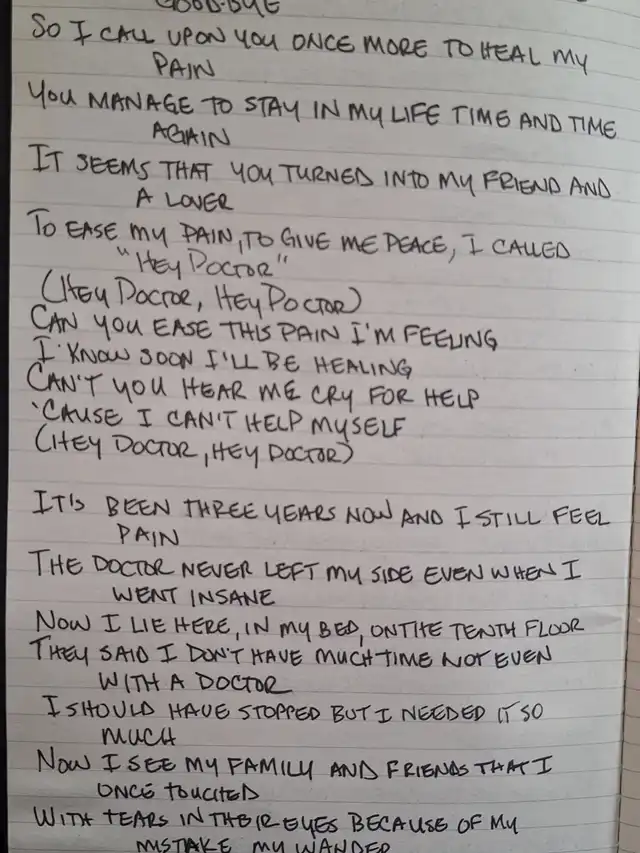 GOOD-BYE
SO I CALL UPON YOU ONCE MORE TO HEAL MY
PAIN
YOU MANAGE TO STAY IN MY LIFE TIME AND TIME
AGAIN
IT SEEMS THAT YOU TURNED INTO MY FRIEND AND
A LOVER
TO EASE MY PAIN, TO GIVE ME PEACE, I CALLED
"HEY DOCTOR"
(HEY DOCTOR, HEY DOCTOR)
CAN YOU EASE THIS PAIN I'M FEELING
I KNOW SOON I'LL BE HEALING
CAN'T YOU HEAR ME CRY FOR HELP
'CAUSE I CAN'T HELP MYSELF
(HEY DOCTOR, HEY DOCTOR)
IT'S BEEN THREE YEARS NOW AND I STILL FEEL
PAIN
THE DOCTOR NEVER LEFT MY SIDE EVEN WHEN I
WENT INSANE
NOW I LIE HERE, IN MY BED, ON THE TENTH FLOOR
THEY SAID I DON'T HAVE MUCH TIME NOT EVEN
WITH A DOCTOR
I SHOULD HAVE STOPPED BUT I NEEDED IT SO
MUCH
NOW I SEE MY FAMILY AND FRIENDS THAT I
ONCE TOUCHED
WITH TEARS IN THEIR EYES BECAUSE OF MY
MISTAKE MY